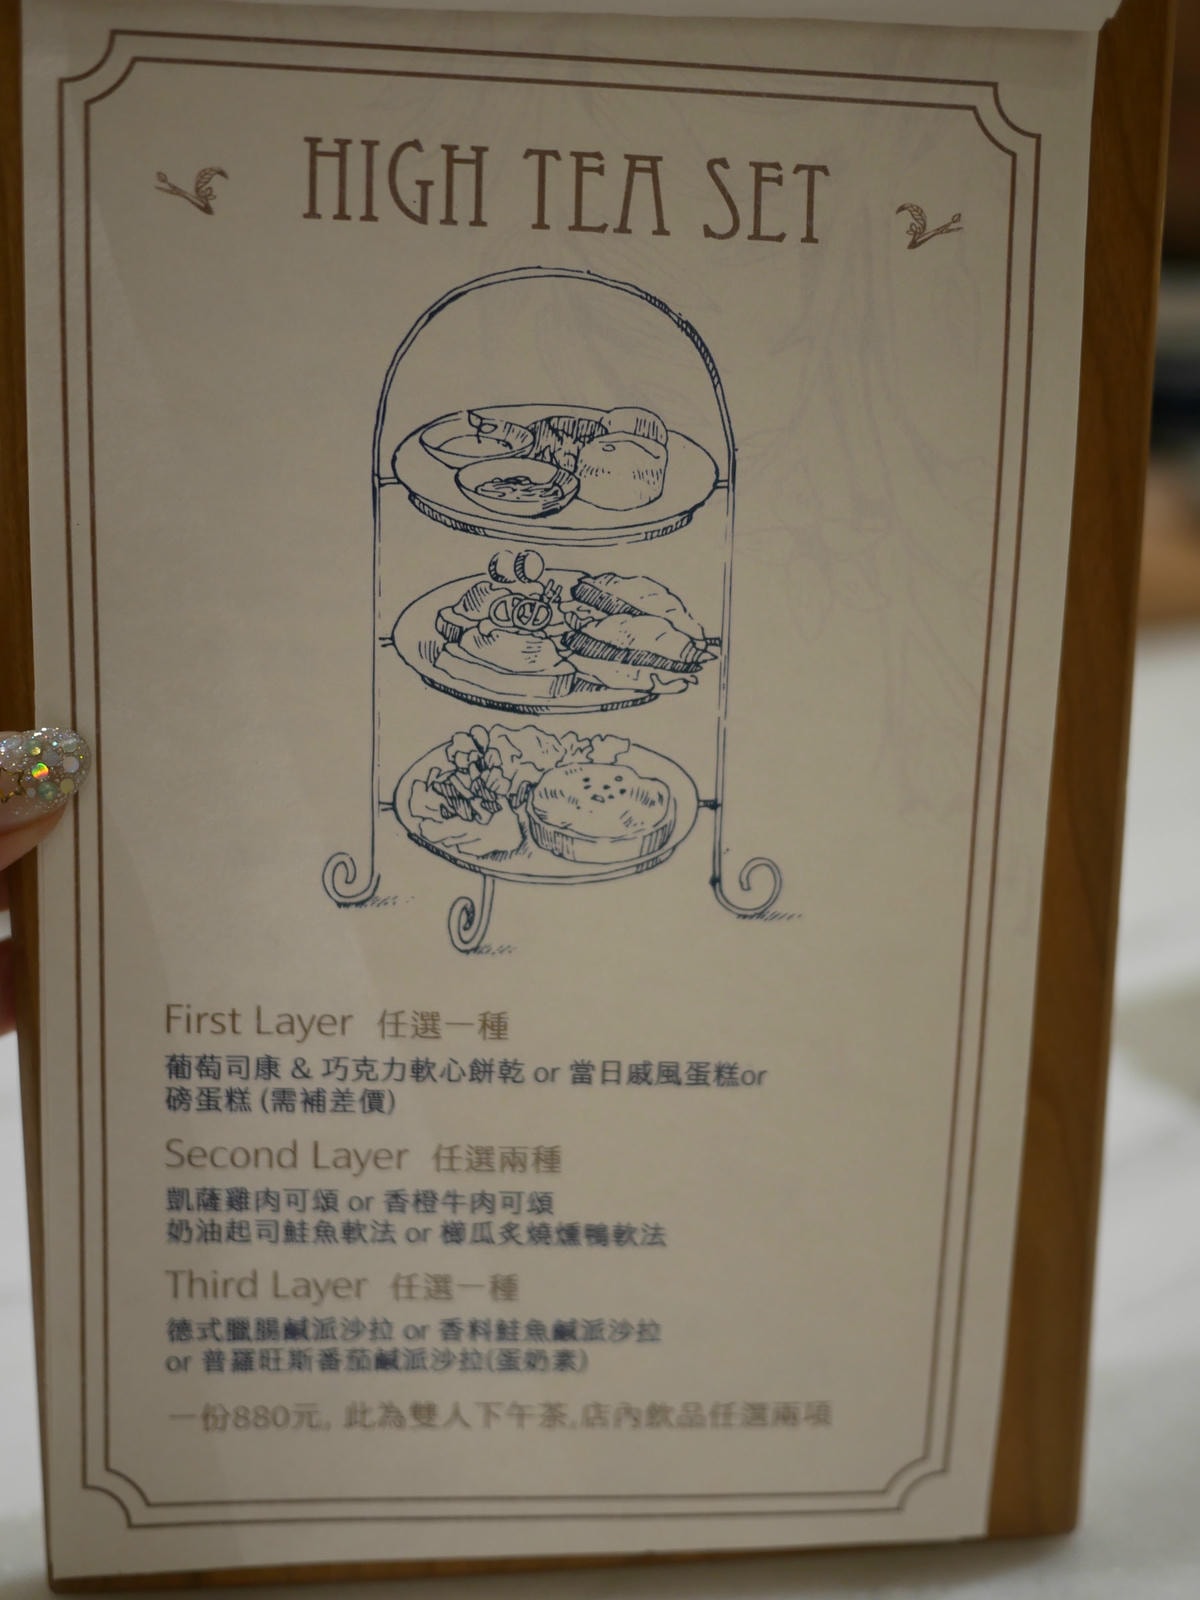 HIGH TEA SET
First Layer 任選一種
葡萄司康 & 巧克力軟心餅乾 or 當日戚風蛋糕or
磅蛋糕 (需補差價)
Second Layer 任選兩種
凱薩雞肉可頌 or 香橙牛肉可頌
奶油起司鮭魚軟法 or 櫛瓜炙燒燻鴨軟法
Third Layer 任選一種
德式臘腸鹹派沙拉 or 香料鮭魚鹹派沙拉
or 普羅旺斯番茄鹹派沙拉(蛋奶素)
一份880元, 此為雙人下午茶,店內飲品任選兩項